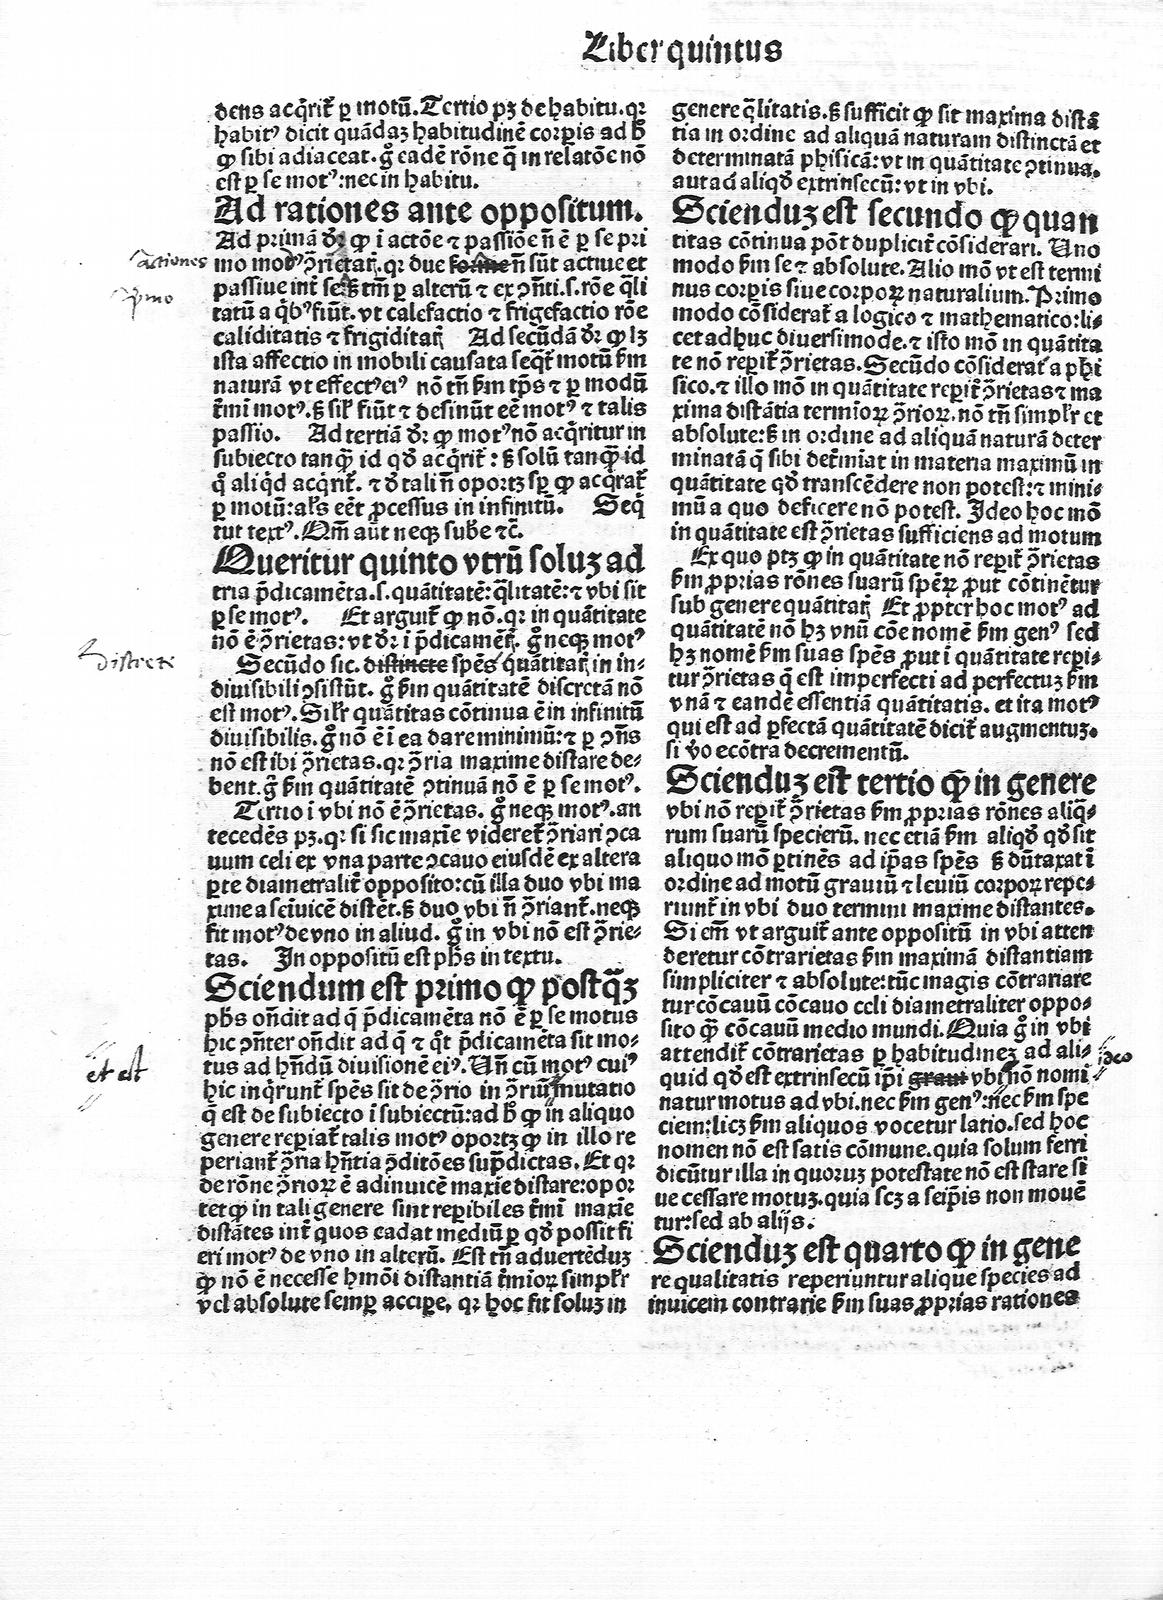 Liber quintus
dens acq̄rit᷑ ꝑ motū. Tertio pꝫ de habitu. qꝛ
habitꝰ dicit quādaꝫ habitudinē corꝑis ad h̄
ꝙ sibi adiaceat. g̊ eadē rōne q̄ in relatōe nō
est ꝑ se motꝰ: nec in habitu.
Ad rationes ante oppositum.
Ad primā dꝛ̄ ꝙ i actōe ⁊ passiōe n̄ ē ꝑ se pri
actiones
mo motꝰ ꝯ̄rietat᷑. qꝛ due forme n̄ sūt actiue et
primo
passiue int᷑ se. ꝫ tm̄ ꝑ alterū ⁊ ex ꝯn̄ti. s. rōe q̄li
tatū a q̄bꝰ fiūt. vt calefactio ⁊ frigefactio rōe
caliditatis ⁊ frigiditat᷑ Ad secūdā dꝛ̄ ꝙ lꝫ
ista affectio in mobili causata seq̄t᷑ motū ẜm
naturā vt effectꝰ eiꝰ nō tn̄ ẜm tp̄s ⁊ ꝑ modū
t᷑mi motꝰ. ꝫ sil᷑ fiūt ⁊ desinūt eē̄ motꝰ ⁊ talis
passio. Ad tertiā dꝛ̄ ꝙ motꝰ nō acq̄ritur in
subiecto tanꝙ̄ id qd̄ acq̄rit᷑: ꝫ solū tanꝙ̄ id
q̄ aliq̄d acq̄rit᷑. ⁊ d̄ tali n̄ oportꝫ sꝑ ꝙ acq̄rat᷑
ꝑ motū: al̓s eēt ꝓcessus in infinitū. Seq̄
tur textꝰ. Qm̄ aūt neqꝫ sub̄e ⁊c̄.
Queritur quinto vtrū soluꝫ ad
tria p̄dicamēta. s. quātitatē: q̄litatē: ⁊ vbi sit
ꝑ se motꝰ. Et arguit᷑ ꝙ nō. qꝛ in quātitate
nō ē ꝯ̄rietas: vt dꝛ̄ i p̄dicamēt᷑. g̊ neqꝫ motꝰ
Discrete
Secūdo sic. distincte spēs quātitat᷑ in in⸗
diuisibili ꝯsistūt. g̊ ẜm quātitatē discretā nō
est motꝰ. Sil̓r quātitas cōtinua ē in infinitū
diuisibilis. g̊ nō ē i ea dare minimū: ⁊ ꝑ ꝯn̄s
nō est ibi ꝯ̄rietas. qꝛ ꝯ̄ria maxime distare de⸗
bent. g̊ ẜm quātitatē ꝯtinuā nō ē ꝑ se motꝰ.
Tertio i vbi nō ē ꝯ̄rietas. g̊ neqꝫ motꝰ. an
tecedēs pꝫ. qꝛ si sic maxīe videret᷑ ꝯ̄riari ꝯca
uum celi ex vna parte ꝯcauo eiusdē ex altera
ꝑte diametralit᷑ opposito: cū illa duo vbi ma
xime a seiuicē distēt. ꝫ duo vbi n̄ ꝯ̄riant᷑. neqꝫ
fit motꝰ de vno in aliud. g̊ in vbi nō est ꝯ̄rie⸗
tas. In oppositū est ph̄s in textu.
Sciendum est primo ꝙ postq̄ꝫ
ph̄s on̄dit ad q̄ p̄dicamēta nō ē ꝑ se motus
hic ꝯn̄ter on̄dit ad q̄ ⁊ q̄t p̄dicamēta sit mo⸗
et est
tus ad hn̄dū diuisionē eiꝰ. Un̄ cū motꝰ cuiꝰ
hic inq̄runt᷑ spēs sit de ꝯ̄rio in ꝯ̄riū mutatio
q̄ est de subiecto i subiectū: ad h̄ ꝙ in aliquo
genere reꝑiat᷑ talis motꝰ oportꝫ ꝙ in illo re
periant᷑ ꝯ̄ria hn̄tia ꝯditōes sup̄dictas. Et qꝛ
de rōne ꝯ̄rioꝝ ē adinuicē maxīe distare: opor
tet ꝙ in tali genere sint reꝑibiles t᷑mi maxīe
distātes int᷑ quos cadat mediū ꝑ qd̄ possit fi
eri motꝰ de vno in alterū. Est tn̄ aduertēduꝫ
ꝙ nō ē necesse hmōi distantiā t᷑mioꝝ simpl̓r
vel absolute semꝑ accipe. qꝛ hoc fit soluꝫ in
genere q̄litatis. ꝫ sufficit ꝙ sit maxima distā
tia in ordine ad aliquā naturam distinctā et
determinatā phisicā: vt in quātitate ꝯtinua.
aut ad aliqd̄ extrinsecū: vt in vbi.
Scienduꝫ est secundo ꝙ quan
titas cōtinua pōt duplicit᷑ cōsiderari. Uno
modo ẜm se ⁊ absolute. Alio mō vt est termi
nus corꝑis siue corpoꝝ naturalium. Primo
modo cōsiderat᷑ a logico ⁊ mathematico: li⸗
cet adhuc diuersimode. ⁊ isto mō in quātita
te nō reꝑit᷑ ꝯ̄rietas. Secūdo cōsiderat᷑ a phi
sico. ⁊ illo mō in quātitate reꝑit᷑ ꝯ̄rietas ⁊ ma
xima distātia termīoꝝ ꝯ̄rioꝝ. nō tn̄ simpl̓r et
absolute: ꝫ in ordine ad aliquā naturā deter
minatā q̄ sibi det᷑miat in materia maximū in
quātitate qd̄ transcēdere non potest: ⁊ mini⸗
mū a quo deficere nō potest. Ideo hoc mō
in quātitate est ꝯ̄rietas sufficiens ad motum
Ex quo ptꝫ ꝙ in quātitate nō reꝑit᷑ ꝯ̄rietas
ẜm ꝓprias rōnes suarū speꝝ ꝓut cōtinētur
sub genere quātitat᷑ Et ꝓpter hoc motꝰ ad
quātitatē nō hꝫ vnū cōe nomē ẜm genꝰ sed
hꝫ nomē ẜm suas spēs ꝓut i quātitate repi⸗
tur ꝯ̄rietas q̄ est imperfecti ad perfectuꝫ ẜm
vnā ⁊ eandē essentiā quātitatis. et ita motꝰ
qui est ad ꝑfectā quātitatē dicit᷑ augmentuꝫ.
si v̄o ecōtra decrementū.
Scienduꝫ est tertio ꝙ in genere
vbi nō reꝑit᷑ ꝯ̄rietas ẜm ꝓprias rōnes aliq̄⸗
rum suarū specierū. nec etiā ẜm aliqd̄ qd̄ sit
aliquo mō ꝑtinēs ad ip̄as spēs ꝫ dūtaxat ī
ordine ad motū grauiū ⁊ leuiū corpoꝝ repe⸗
riunt᷑ in vbi duo termini maxime distantes.
Si em̄ vt arguit᷑ ante oppositū in vbi atten
deretur cōtrarietas ẜm maximā distantiam
simpliciter ⁊ absolute: tūc magis cōtrariare
tur cōcauū cōcauo celi diametraliter oppo⸗
sito ꝙ̄ cōcauū medio mundi. Quia g̊ in vbi
attendit᷑ cōtrarietas ꝑ habitudineꝫ ad ali⸗
ideo
quid qd̄ est extrinsecū ip̄i graui vbi nō nomi
natur motus ad vbi. nec ẜm genꝰ: nec ẜm spe
ciem: licꝫ ẜm aliquos vocetur latio. sed hoc
nomen nō est satis cōmune. quia solum ferri
dicūtur illa in quoruꝫ potestate nō est stare si
ue cessare motuꝫ. quia scꝫ a seip̄is non mouē
tur: sed ab alijs.
Scienduꝫ est quarto ꝙ in gene
re qualitatis reperiuntur alique species ad
inuicem contrarie ẜm suas ꝓprias rationes